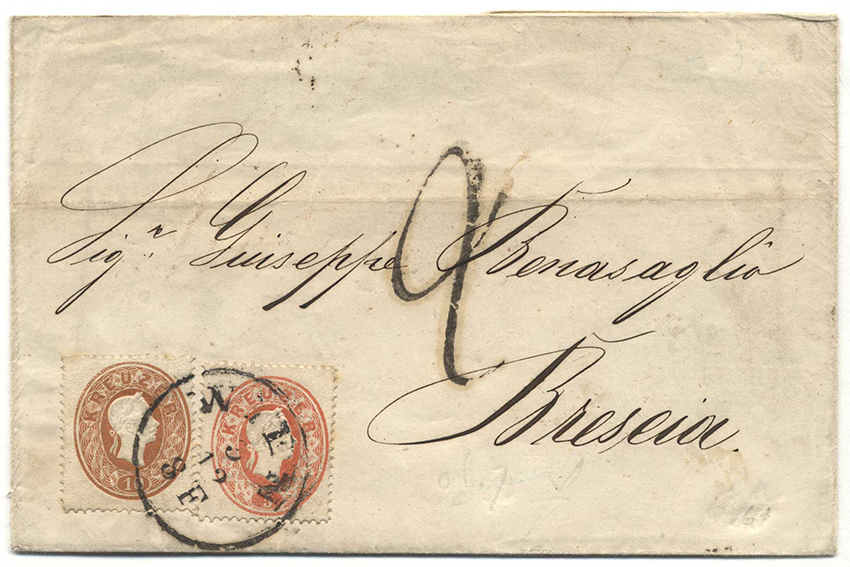 Sigr. Giuseppe Benasaglio
Brescia.
9
KREUZER
10
KREUZER
WIEN
12
8 E